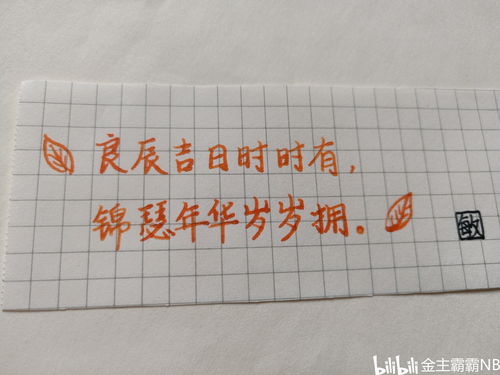 良辰吉日时时有,
锦瑟年华岁岁拥。
敏
bilibili 金主霸霸NB